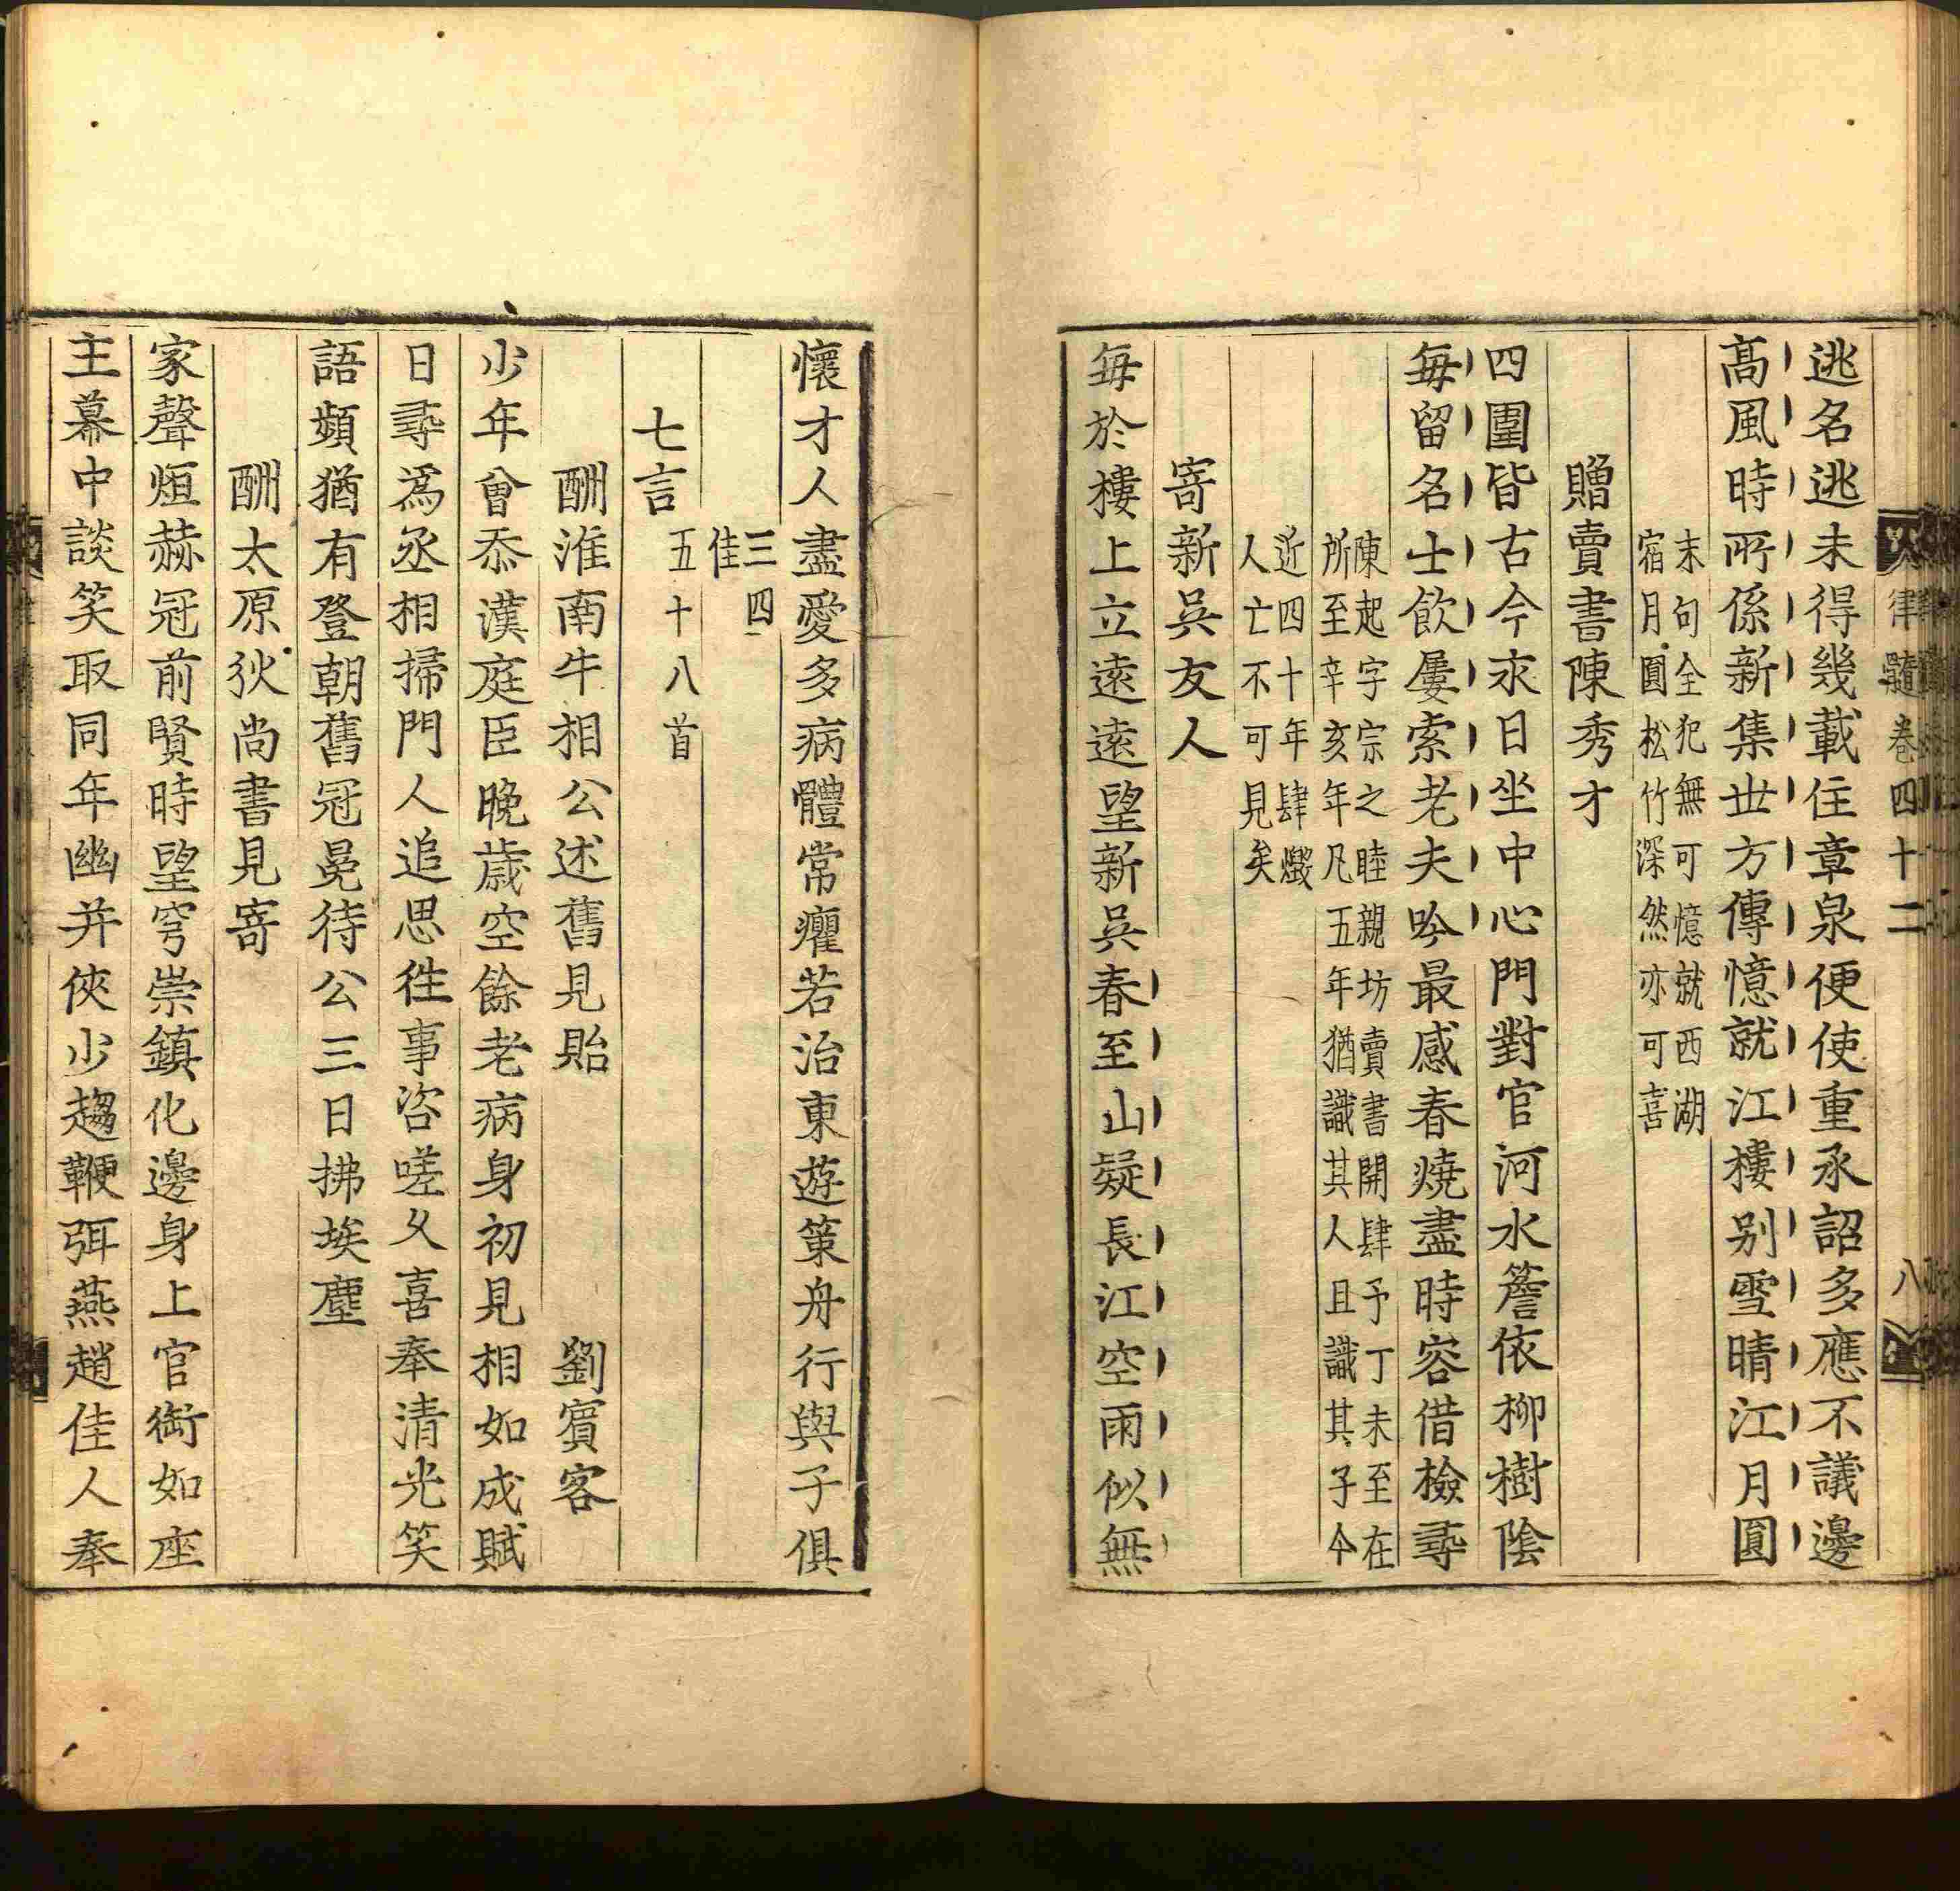 律髓卷四十二 八
逃名逃未得幾載住章泉便使重承詔多應不議邊
髙風時所係新集世方傳憶就江樓别雪晴江月圓
末句全犯無可憶就西湖
宿月圓松竹深然亦可喜
贈賣書陳秀才
四圍皆古今永日坐中心門對官河水簷依柳樹隂
毎留名士飲屢索老夫吟最感春燒盡時容借檢尋
陳起字宗之睦親坊賣書開肆予丁未至在
所至辛亥年凡五年猶識其人且識其子今
近四十年肆燬
人亡不可見矣
寄新吳友人
毎於樓上立遠遠望新吳春至山疑長江空雨似無
懷才人盡愛多病體常癯若治東遊策舟行與子俱
三四
佳
七言 五十八首
酬淮南牛相公述舊見貽 劉賓客
少年曾忝漢庭臣晚歳空餘老病身初見相如成賦
日尋爲丞相掃門人追思徃事咨嗟乆喜奉清光笑
語頻猶有登朝舊冠冕待公三日拂埃塵
酬太原狄尚書見寄
家聲烜赫冠前賢時望穹崇鎮化邊身上官銜如座
主幕中談笑取同年幽并俠少趨鞭弭燕趙佳人奉